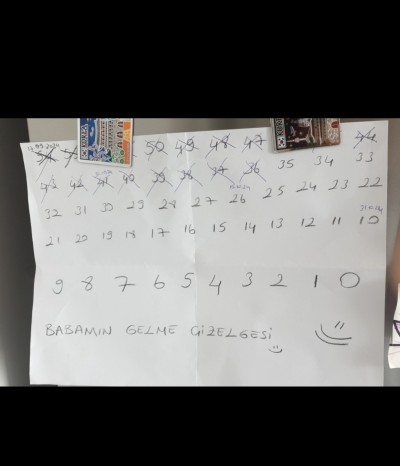 50 49 48 47 44
43 42 41 40 39 38 37 36 35 34 33
32 31 30 29 28 27 26 25 24 23 22
21 20 19 18 17 16 15 14 13 12 11 10
9 8 7 6 5 4 3 2 1 0
BABAMIN GELME ÇİZELGESİ